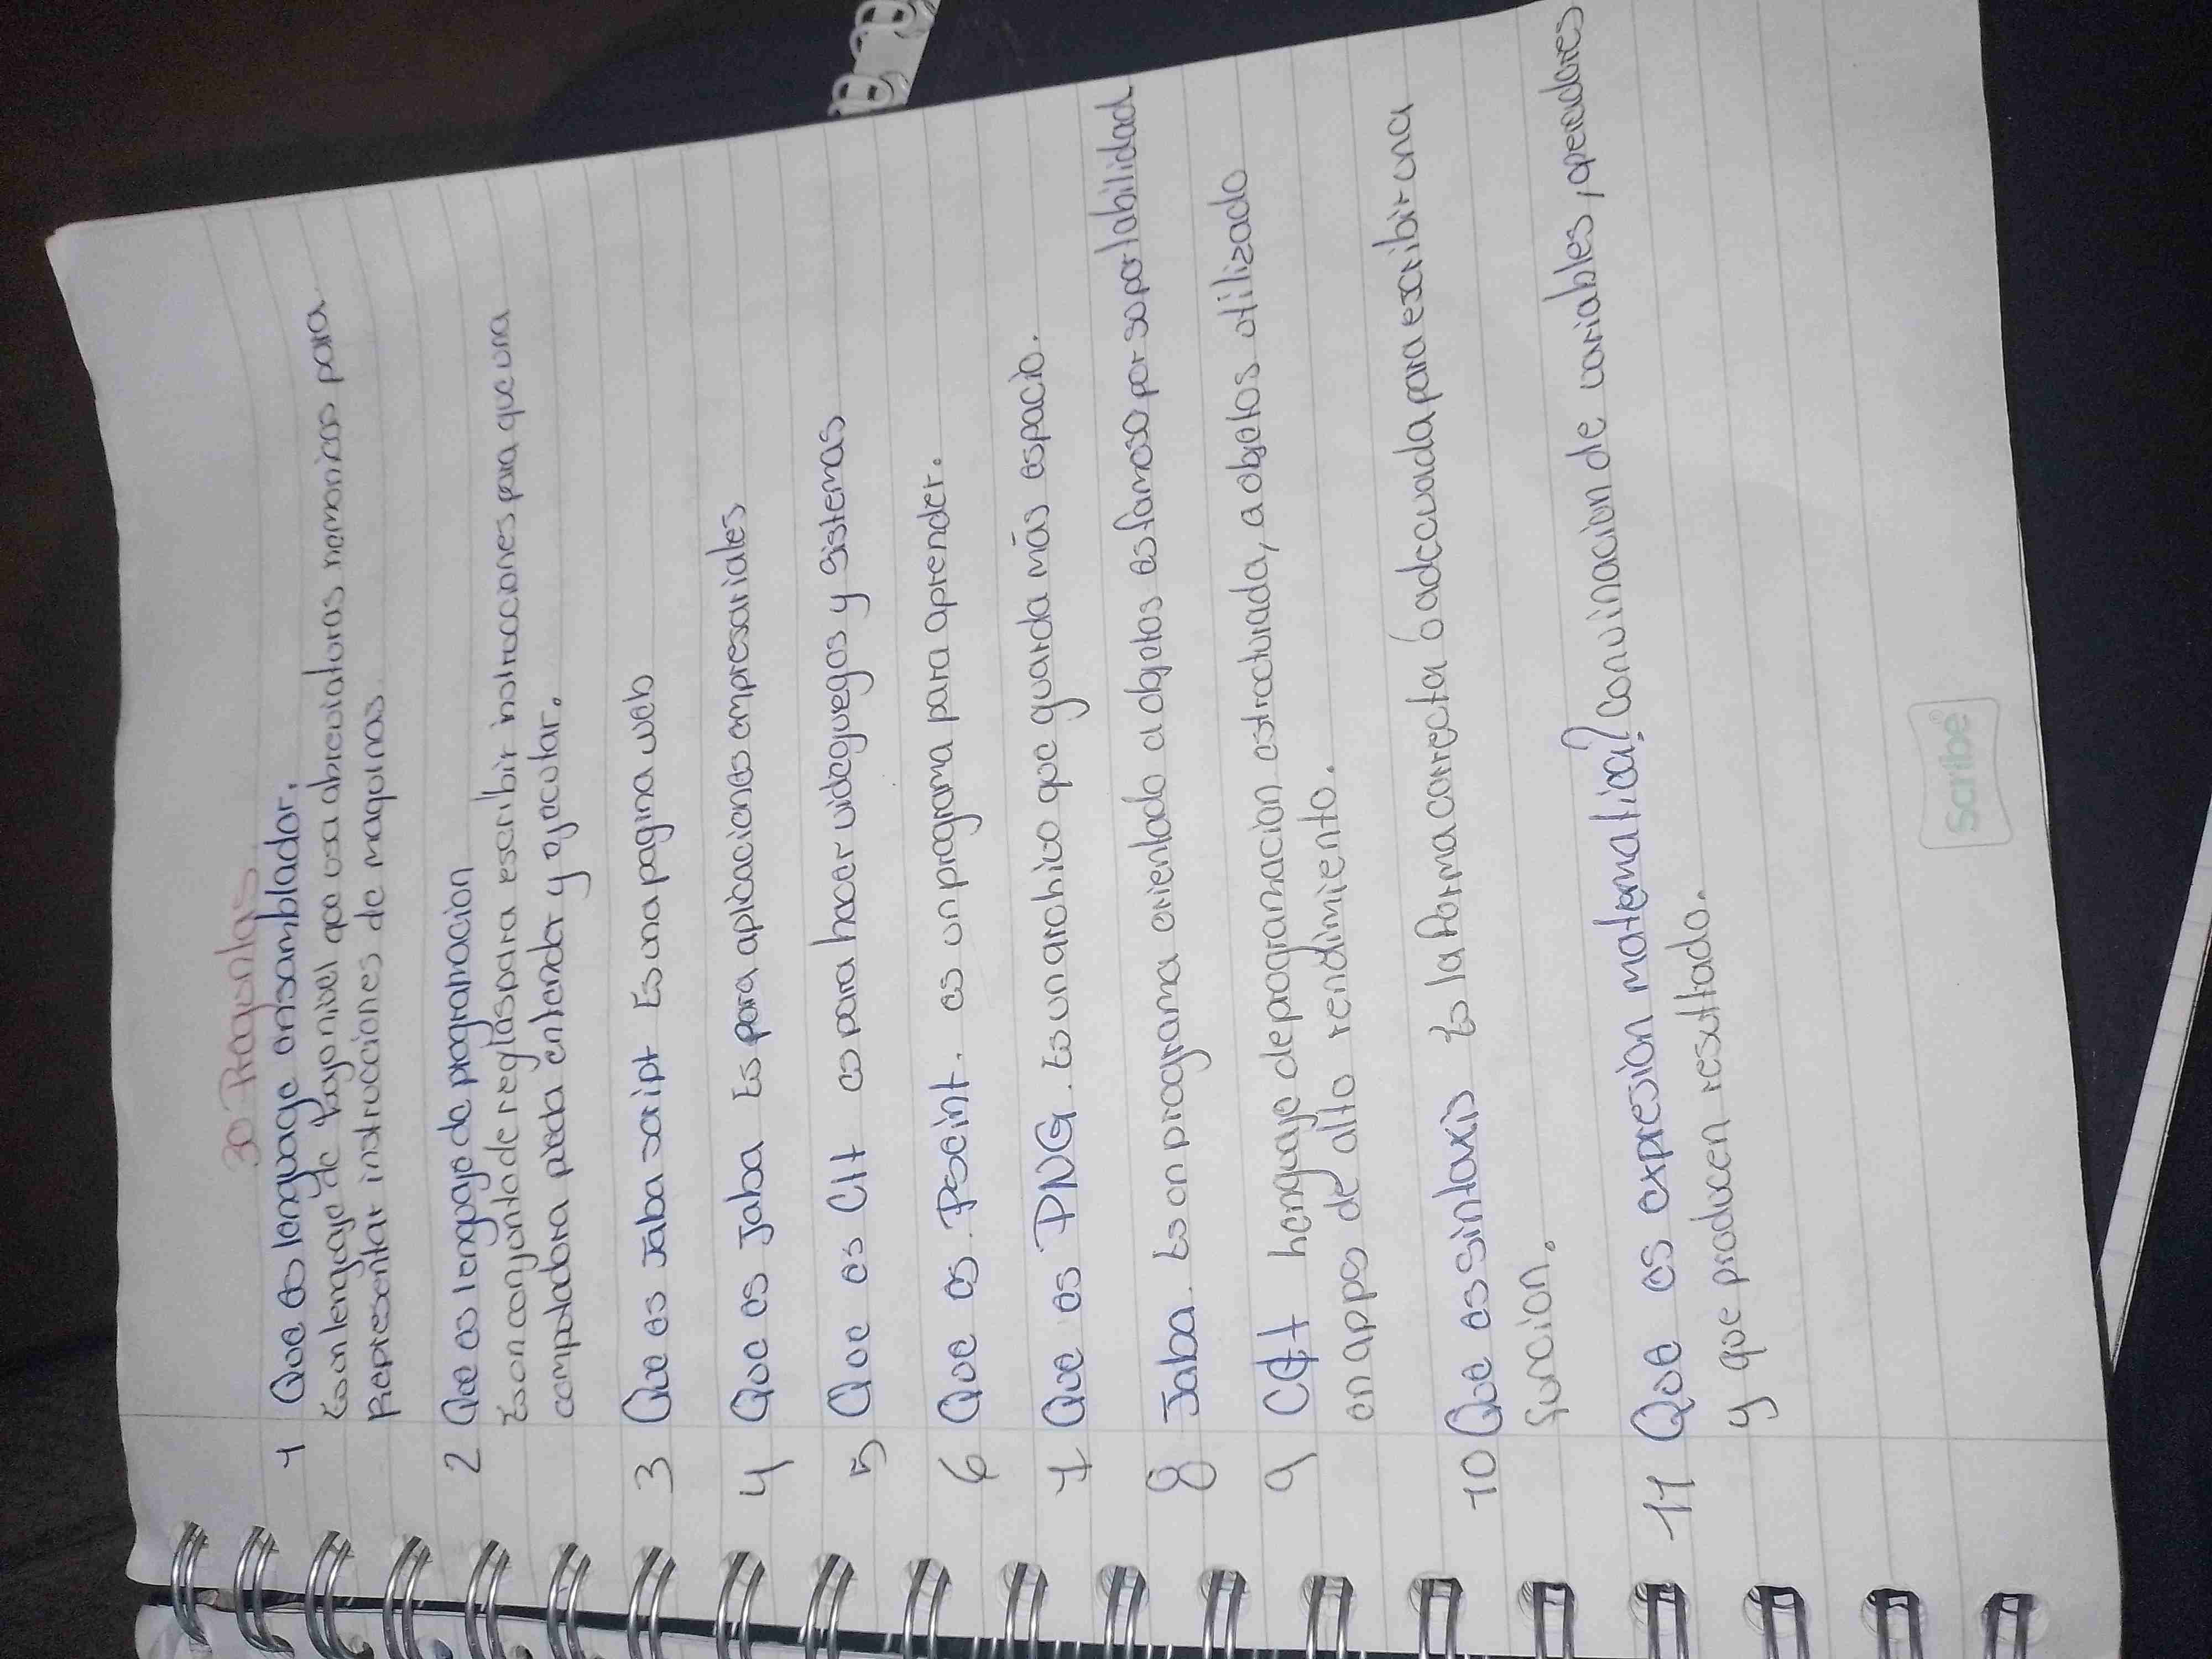 30 Preguntas
1 Que es lenguage ensamblador.
Es un lenguaje de bajo nivel que usa abreviaturas nemonicas para
Representar instrucciones de maquinas
2 Que es lenguaje de programacion
Es un conjunto de reglas para escribir instrucciones para que una
computadora pueda entender y ejecutar.
3 Que es Jaba script Es una pagina web
4 Que es Jaba Es para aplicaciones empresariales
5 Que es C++ es para hacer videojuegos y sistemas
6 Que es PseinT. es un programa para aprender.
7 Que es PNG. Es un archivo que guarda más espacio.
8 Jaba. Es un programa orientado a objetos es famoso por su portabilidad
9 C++ henguaje de programacion estructurada, a objetos utilizado
en apps de alto rendimiento.
10 Que es sintaxis Es la forma correcta ó adecuada para escribir una
funcion.
11 Que es expresion matematica? convinacion de variables, operadores
y que producen resultado.
Scribe®